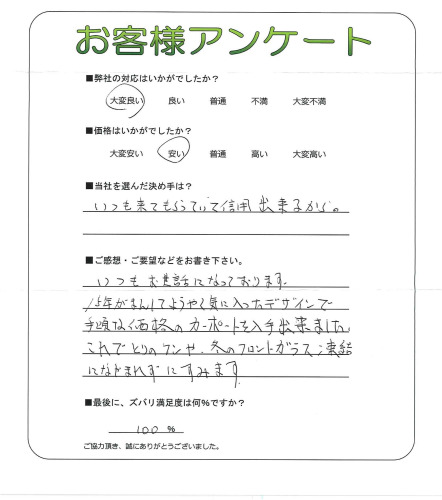 お客様アンケート
■弊社の対応はいかがでしたか?
大変良い 良い 普通 不満 大変不満
■価格はいかがでしたか?
大変安い 安い 普通 高い 大変高い
■当社を選んだ決め手は?
いつも来てもらっていて信用出来るから。
■ご感想・ご要望などをお書き下さい。
いつもお世話になっております。
15年がまんしてようやく気に入ったデザインで
手頃な価格のカーポートを入手出来ました。
これでとりのフンや、冬のフロントガラス凍結
になやまれずにすみます。
■最後に、ズバリ満足度は何%ですか?
100 %
ご協力頂き、誠にありがとうございました。